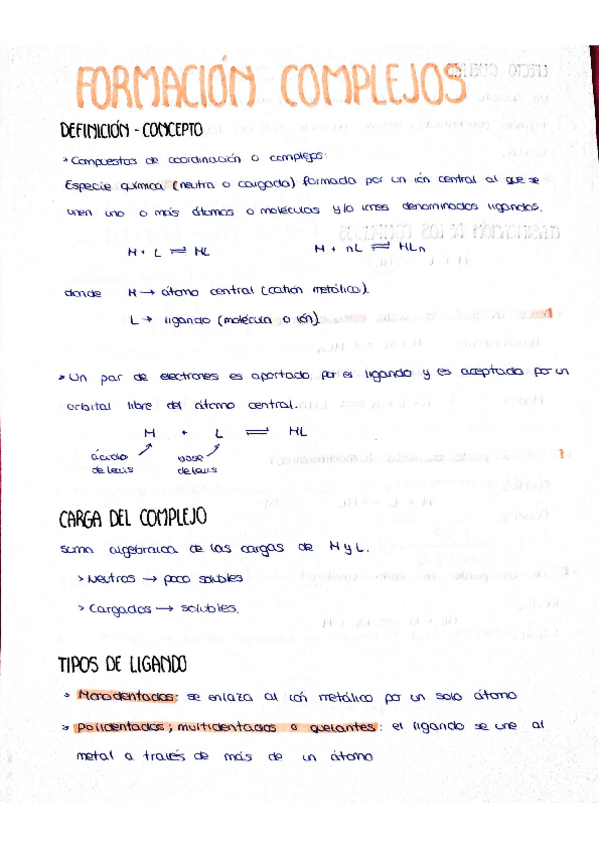 FORMACIÓN COMPLEJOS
DEFINICIÓN - CONCEPTO
> Compuestos de coordinación o complejos:
Especie química (neutra o cargada) formada por un ión central al que se
unen uno o más átomos o moléculas y/o iones denominados ligandos.
M + L ⇌ ML M + nL ⇌ MLn
donde M → átomo central (catión metálico).
L → ligando (molécula o ión).
> Un par de electrones es aportado por el ligando y es aceptado por un
orbital libre del átomo central.
M + L ⇌ ML
ácido base
de lewis de lewis
CARGA DEL COMPLEJO
suma algebraica de las cargas de M y L.
> Neutros → poco solubles
> Cargados → solubles.
TIPOS DE LIGANDO
> Monodentados: se enlaza al ión metálico por un solo átomo
> Polidentados; multidentados o quelantes: el ligando se une al
metal a través de más de un átomo